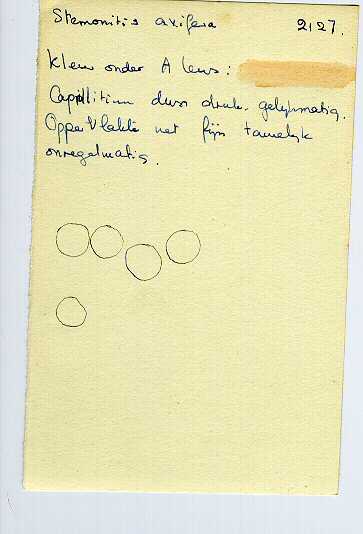 Stemonitis axifera 2127.
Kleur onder A lens:
Capillitium door druk. gelijkmatig.
Oppervlakte net fijn tamelijk
onregelmatig.